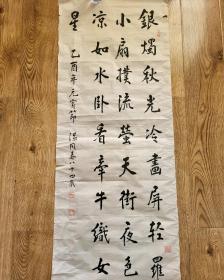 銀燭秋光冷畫屏輕羅
小扇撲流螢天街夜色
凉如水卧看牽牛織女
星
乙酉年元宵節 八十四